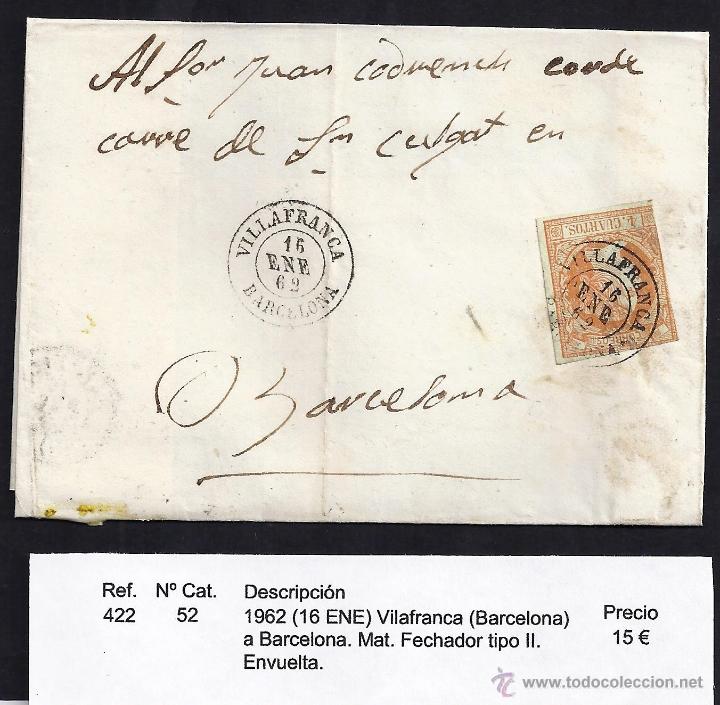 Al Sor Juan Codrench
carre de Sn Culgat en
VILLAFRANCA
16
ENE
62
BARCELONA
4. CUARTOS.
VILLAFRANCA
16
ENE
62
Barcelona
Ref. Nº Cat. Descripción Precio
422 52 1962 (16 ENE) Vilafranca (Barcelona) 15 €
a Barcelona. Mat. Fechador tipo II.
Envuelta.
www.todocoleccion.net